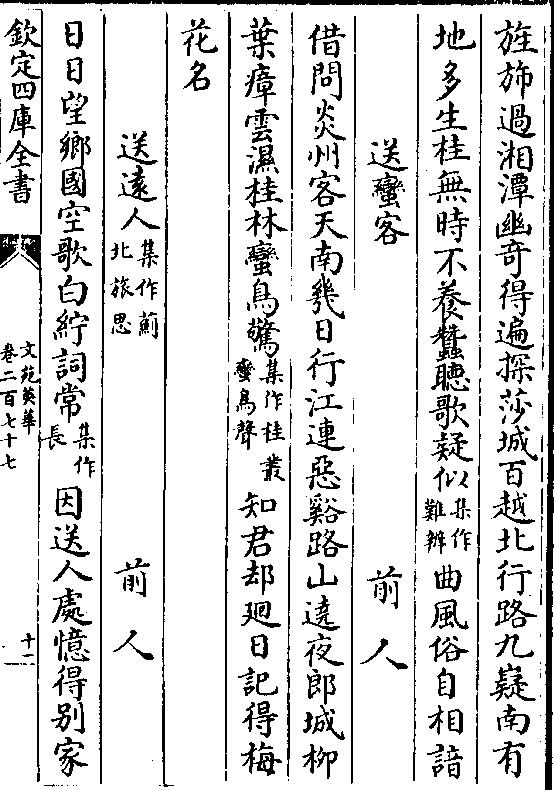 旌斾過湘潭幽奇得遍探莎城百越北行路九嶷南有
地多生桂無時不養蠶聽歌疑似集作難辨曲風俗自相諳
送蠻客 前人
借問炎州客天南幾日行江連惡谿路山遶夜郎城柳
葉瘴雲濕桂林蠻鳥驚集作桂叢蠻鳥聲知君却廻日記得梅
花名
送遠人集作薊北旅思 前人
日日望鄉國空歌白紵詞常集作長因送人處憶得别家
欽定四庫全書
文苑英華
卷二百七十七
十一